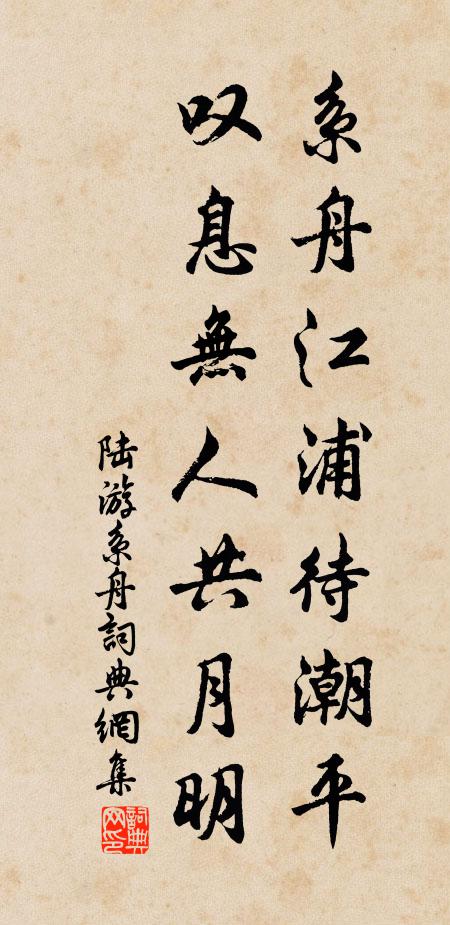 系舟江浦待潮平
叹息無人共月明
陆游系舟詞典網集
詞典網印